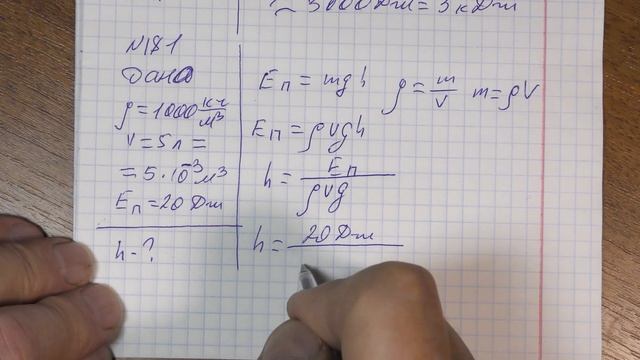 ≈ 3000 Дж = 3 кДж
N181
Дано
ρ = 1000 кг/м³
V = 5 л =
= 5·10⁻³ м³
Eп = 20 Дж
h - ?
Eп = mgh ρ = m/V m = ρV
Eп = ρVgh
h = Eп/ρVg
h = 20 Дж